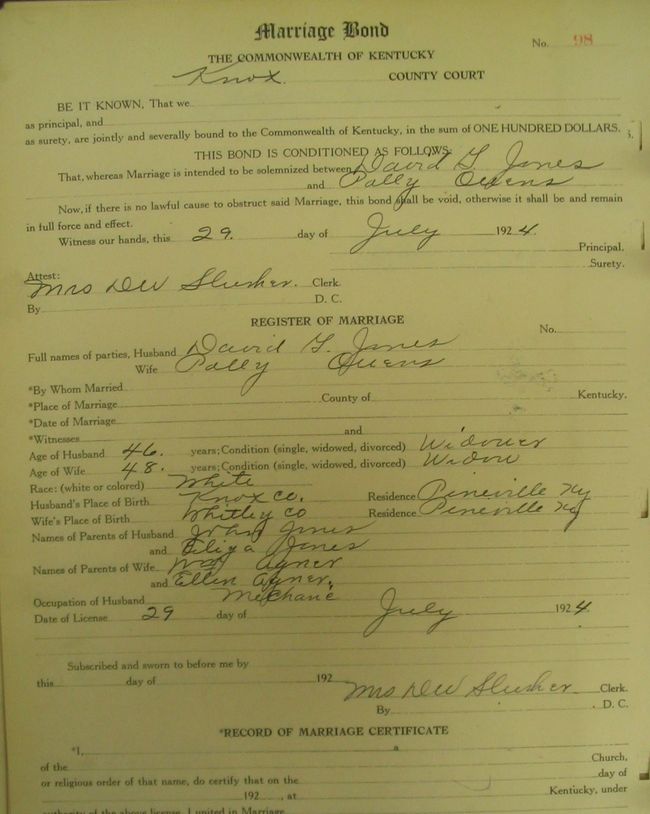 Marriage Bond
No. 98
THE COMMONWEALTH OF KENTUCKY
Knox. COUNTY COURT
BE IT KNOWN, That we
as principal, and
as surety, are jointly and severally bound to the Commonwealth of Kentucky, in the sum of ONE HUNDRED DOLLARS.
THIS BOND IS CONDITIONED AS FOLLOWS:
That, whereas Marriage is intended to be solemnized between David G. Jones
and Polly Owens
Now, if there is no lawful cause to obstruct said Marriage, this bond shall be void, otherwise it shall be and remain
in full force and effect.
Witness our hands, this 29. day of July 1924.
Principal.
Surety.
Attest:
Mrs DW Slusher. Clerk.
By D. C.
REGISTER OF MARRIAGE
No.
Full names of parties, Husband David G. Jones
Wife Polly Owens
*By Whom Married
*Place of Marriage County of Kentucky.
*Date of Marriage
*Witnesses and
Age of Husband 46. years; Condition (single, widowed, divorced) Widower
Age of Wife 48. years; Condition (single, widowed, divorced) Widow
Race: (white or colored) White
Husband's Place of Birth Knox Co. Residence Pineville Ky
Wife's Place of Birth Whitley Co Residence Pineville Ky
Names of Parents of Husband John Jones
and Eliza Jones
Names of Parents of Wife Wm Ayner
and Ellen Ayner.
Occupation of Husband Mechanic
Date of License 29 day of July 1924.
Subscribed and sworn to before me by
this day of 192
Mrs DW Slusher Clerk.
By D. C.
*RECORD OF MARRIAGE CERTIFICATE
*I, a
of the Church,
or religious order of that name, do certify that on the day of
192 , at Kentucky, under
authority of the above license, I united in Marriage